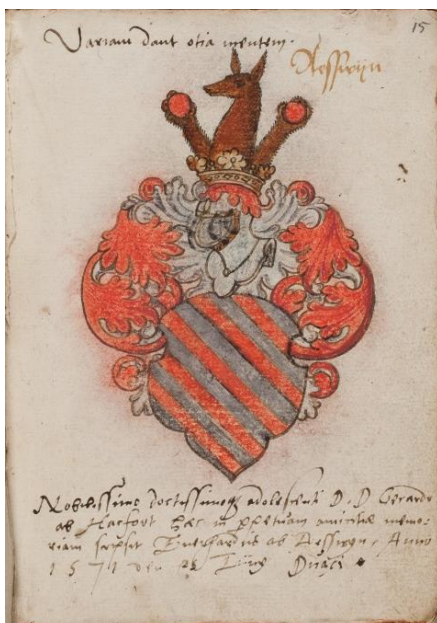 15
Variam dant otia mentem.
Aesswijn
Nobilissimo doctissimoq adolescenti D. D Gerardo
ab Hacfort hæc in ppetuam amicitiæ memo-
riam scripsit Everhardus ab Aesswyn. Anno
1571 den 25 Duaci